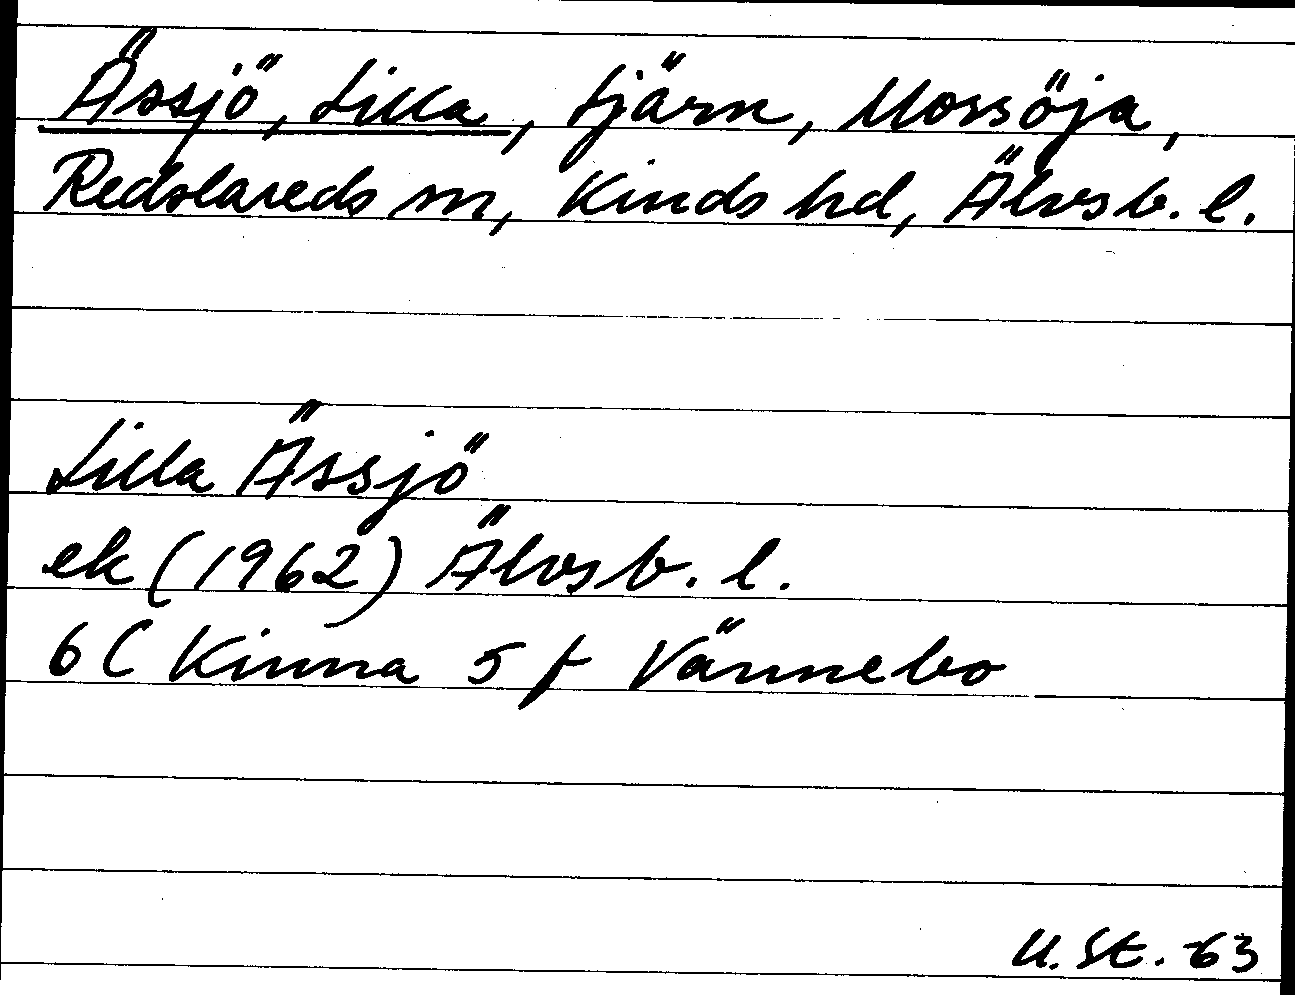 Ässjö, Lilla, tjärn, Mossöja,
Redslareds sn, Kinds hd, Älvsb. l.
Lilla Ässjö
ek (1962) Älvsb. l.
6 C Kinna 5 f Vännebo
U. St. -63